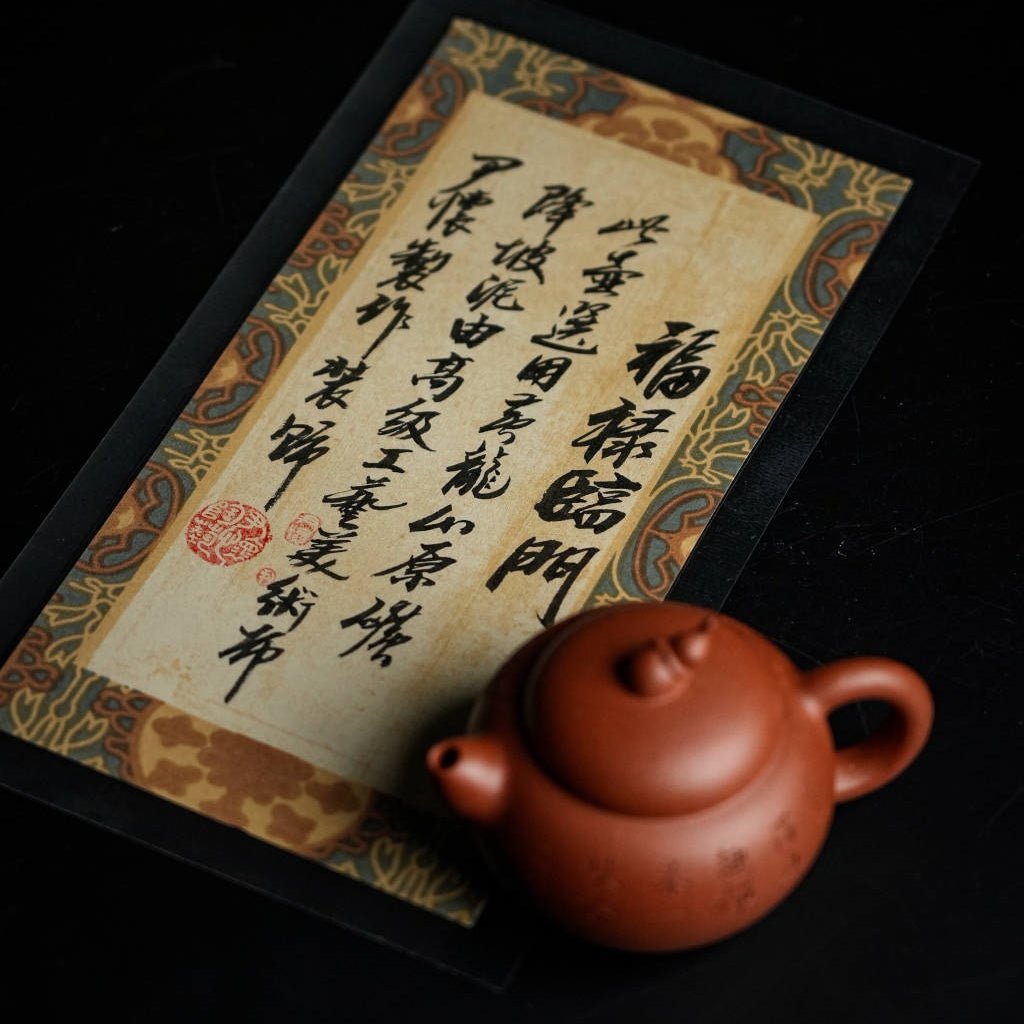 福祿臨門
此壺選用黃龍山原礦
降坡泥由高級工藝美術師
製作裝飾